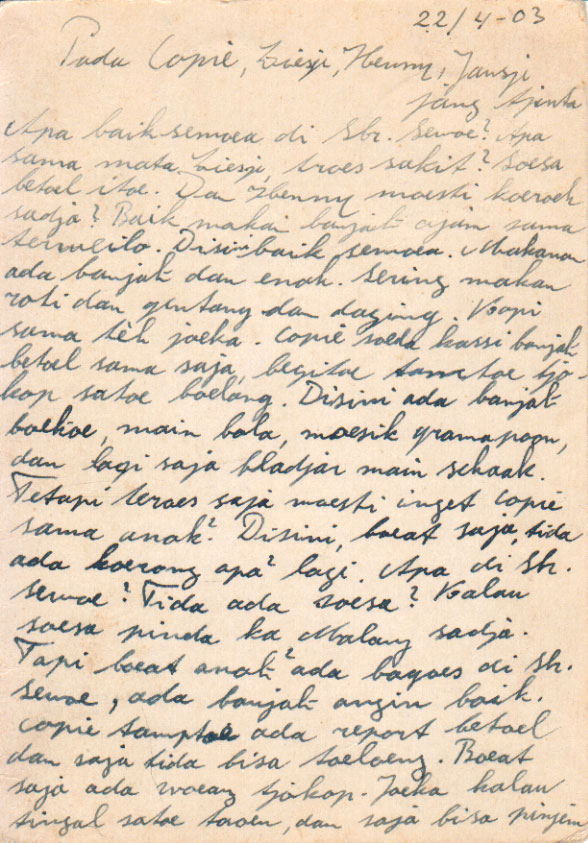 22/4-03
Pada Copie, Liesji, Henny, Jansji
jang tjinta
Apa baik semoea di Sbr. Sewoe? Apa
sama mata Liesji, troes sakit? Soesa
betoel itoe. Dan Henny moesti koeroes
sadja? Baik makan banjak ajam sama
. Disini baik semoea. Makanan
ada banjak dan enak. Sering makan
roti dan gentang dan daging. Kopi
sama tèh joeka. Copie soeda kassi banjak
betoel sama saja, begitoe tamtoe tjo-
kop satoe boelang. Disini ada banjak
boekoe, main bola, moesik gramapoon,
dan lagi saja bladjar main schaak.
Tetapi teroes saja moesti inget Copie
sama anak². Disini, boeat saja, tida
ada koerang apa² lagi. Apa di Sbr.
Sewoe? Tida ada soesa? Kalau
soesa pinda ka Malang sadja.
Tapi boeat anak² ada bagoes di Sbr.
Sewoe, ada banjak angin baik.
Copie tamptoe ada report betoel
dan saja tida bisa toeloeng. Boeat
saja ada woeang tjokop. Joeka kalau
tingal satoe taoen, dan saja bisa pinjem